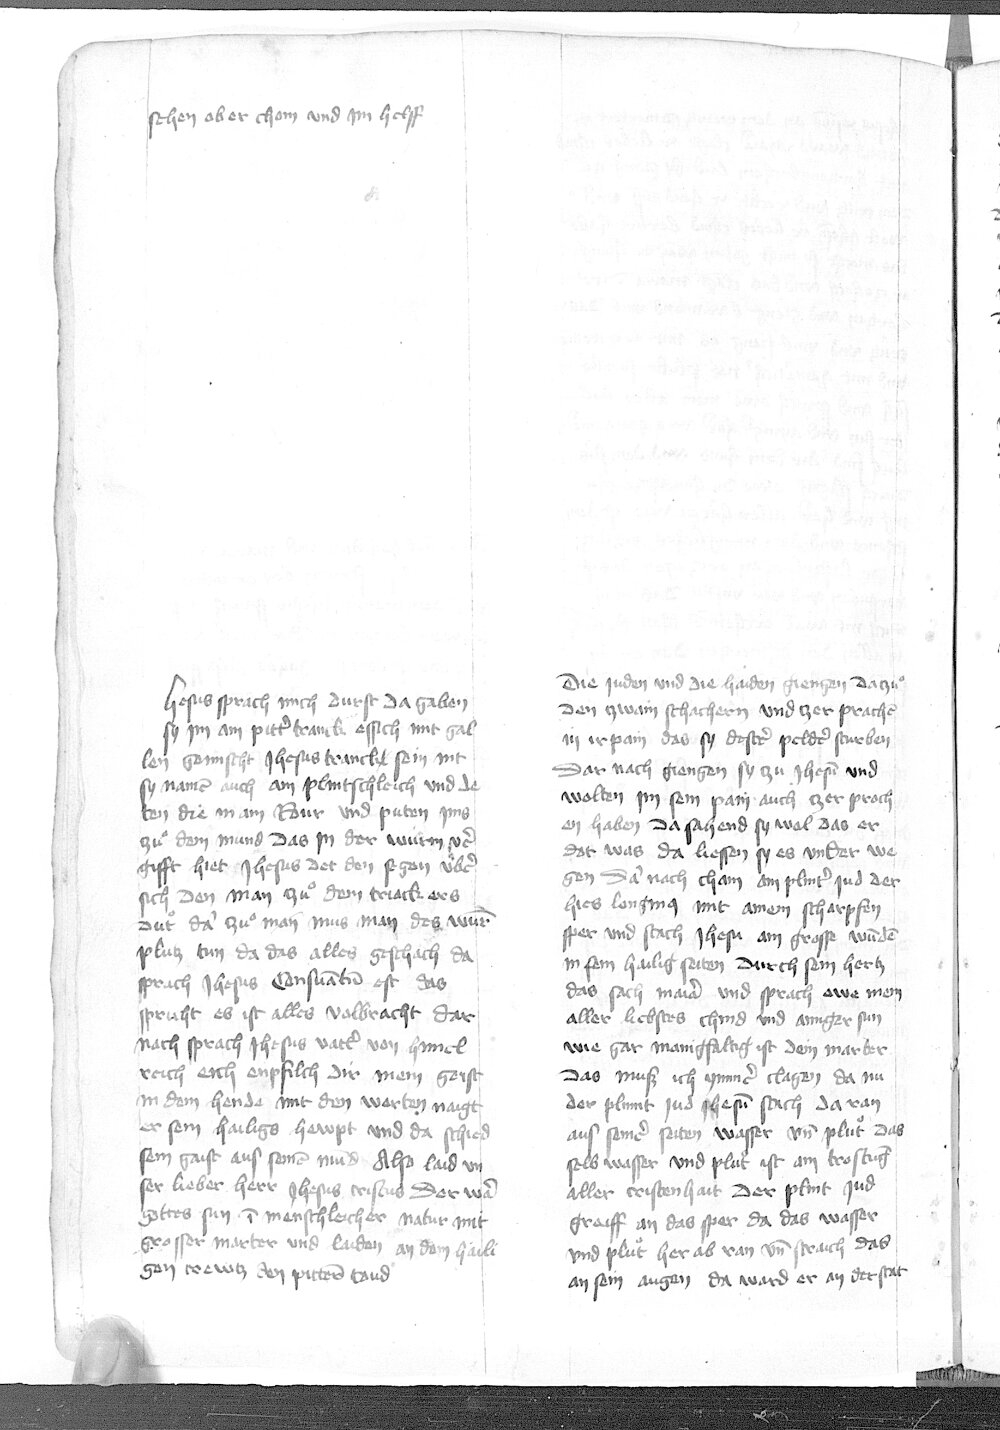 sehen ob er chom vnd Im helff
Jhesus sprach mich durst Da gaben
sy im ain pittˀ tranck essich mit gal
len gemischt Jhesus tranckt sein nit
sy namē auch ain plintschleich und de
ten die in ain Rour vnd puten ims
zuͦ dem mund Das In der würm vˀ
gifft hiet Jhesus Det den segen vͤbˀ
sich Den man zuͦ dem triack ers
Duͦt daˀ zuͦ man mus man des wurm
pluͦtz tun da das alles geschach da
sprach Jhesus Consumatū est das
spricht es ist alles volbracht Dar
nach sprach Jhesus vatˀ von himel
reich eich enpfilch dir mein geist
in dem hende mit den worten naigt
er sein hailigs hewpt vnd da schied
sein gaist aus seinē mūd Also laid vn
ser lieber herr Jhesus cristus Der war
gottes sun ī menschleicher natur mit
grosser marter vnd laiden an dem haili
gen crewtz den pitterē taud
Die Juden vnd die haiden giengen Dazuͦ
Den zwain schachern vnd zer prachē
in ir pain das sy destˀ peldˀ sturben
Dar nach giengen sy zu Jhesū vnd
wolten im sein pain auch zer proch
en haben Da sahend sy wol das er
dot was da liessen sy es vnder we
gen Daˀ nach cham ain plintˀ Jud der
hies longinꝯ mit ainem scharpfen
sper vnd stach Jhesu ain grosse wūdē
in sein hailig seiten Durch sein hertz
das sach maria vnd sprach ewe mein
aller liebstes chind vnd ainiger sun
wie gar manigfaltig ist dein marter
Das muß ich ymmˀ clagen da nu
der plint Jud Jhesū stach da ran
aus seinˀ seiten wasser vn̄ pluͦt Das
selb wasser vnd pluͦt ist ain trostūg
aller cristenhait Der plint Jud
graiff an das sper da das wasser
vnd pluͦt her ab ran vn̄ straich das
an sein augen da ward er an der stat